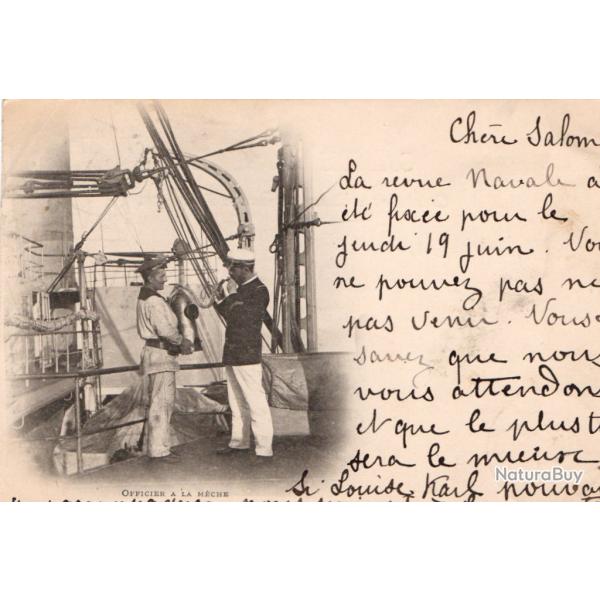 Chère Salom
La revue Navale a
été fixée pour le
jeudi 19 juin. Vou
ne pouvez pas ne
pas venir. Vous
savez que nous
vous attendons
et que le plus t
sera le mieux
OFFICIER A LA MÈCHE
Si Louise, Karl pouvai
NaturaBuy